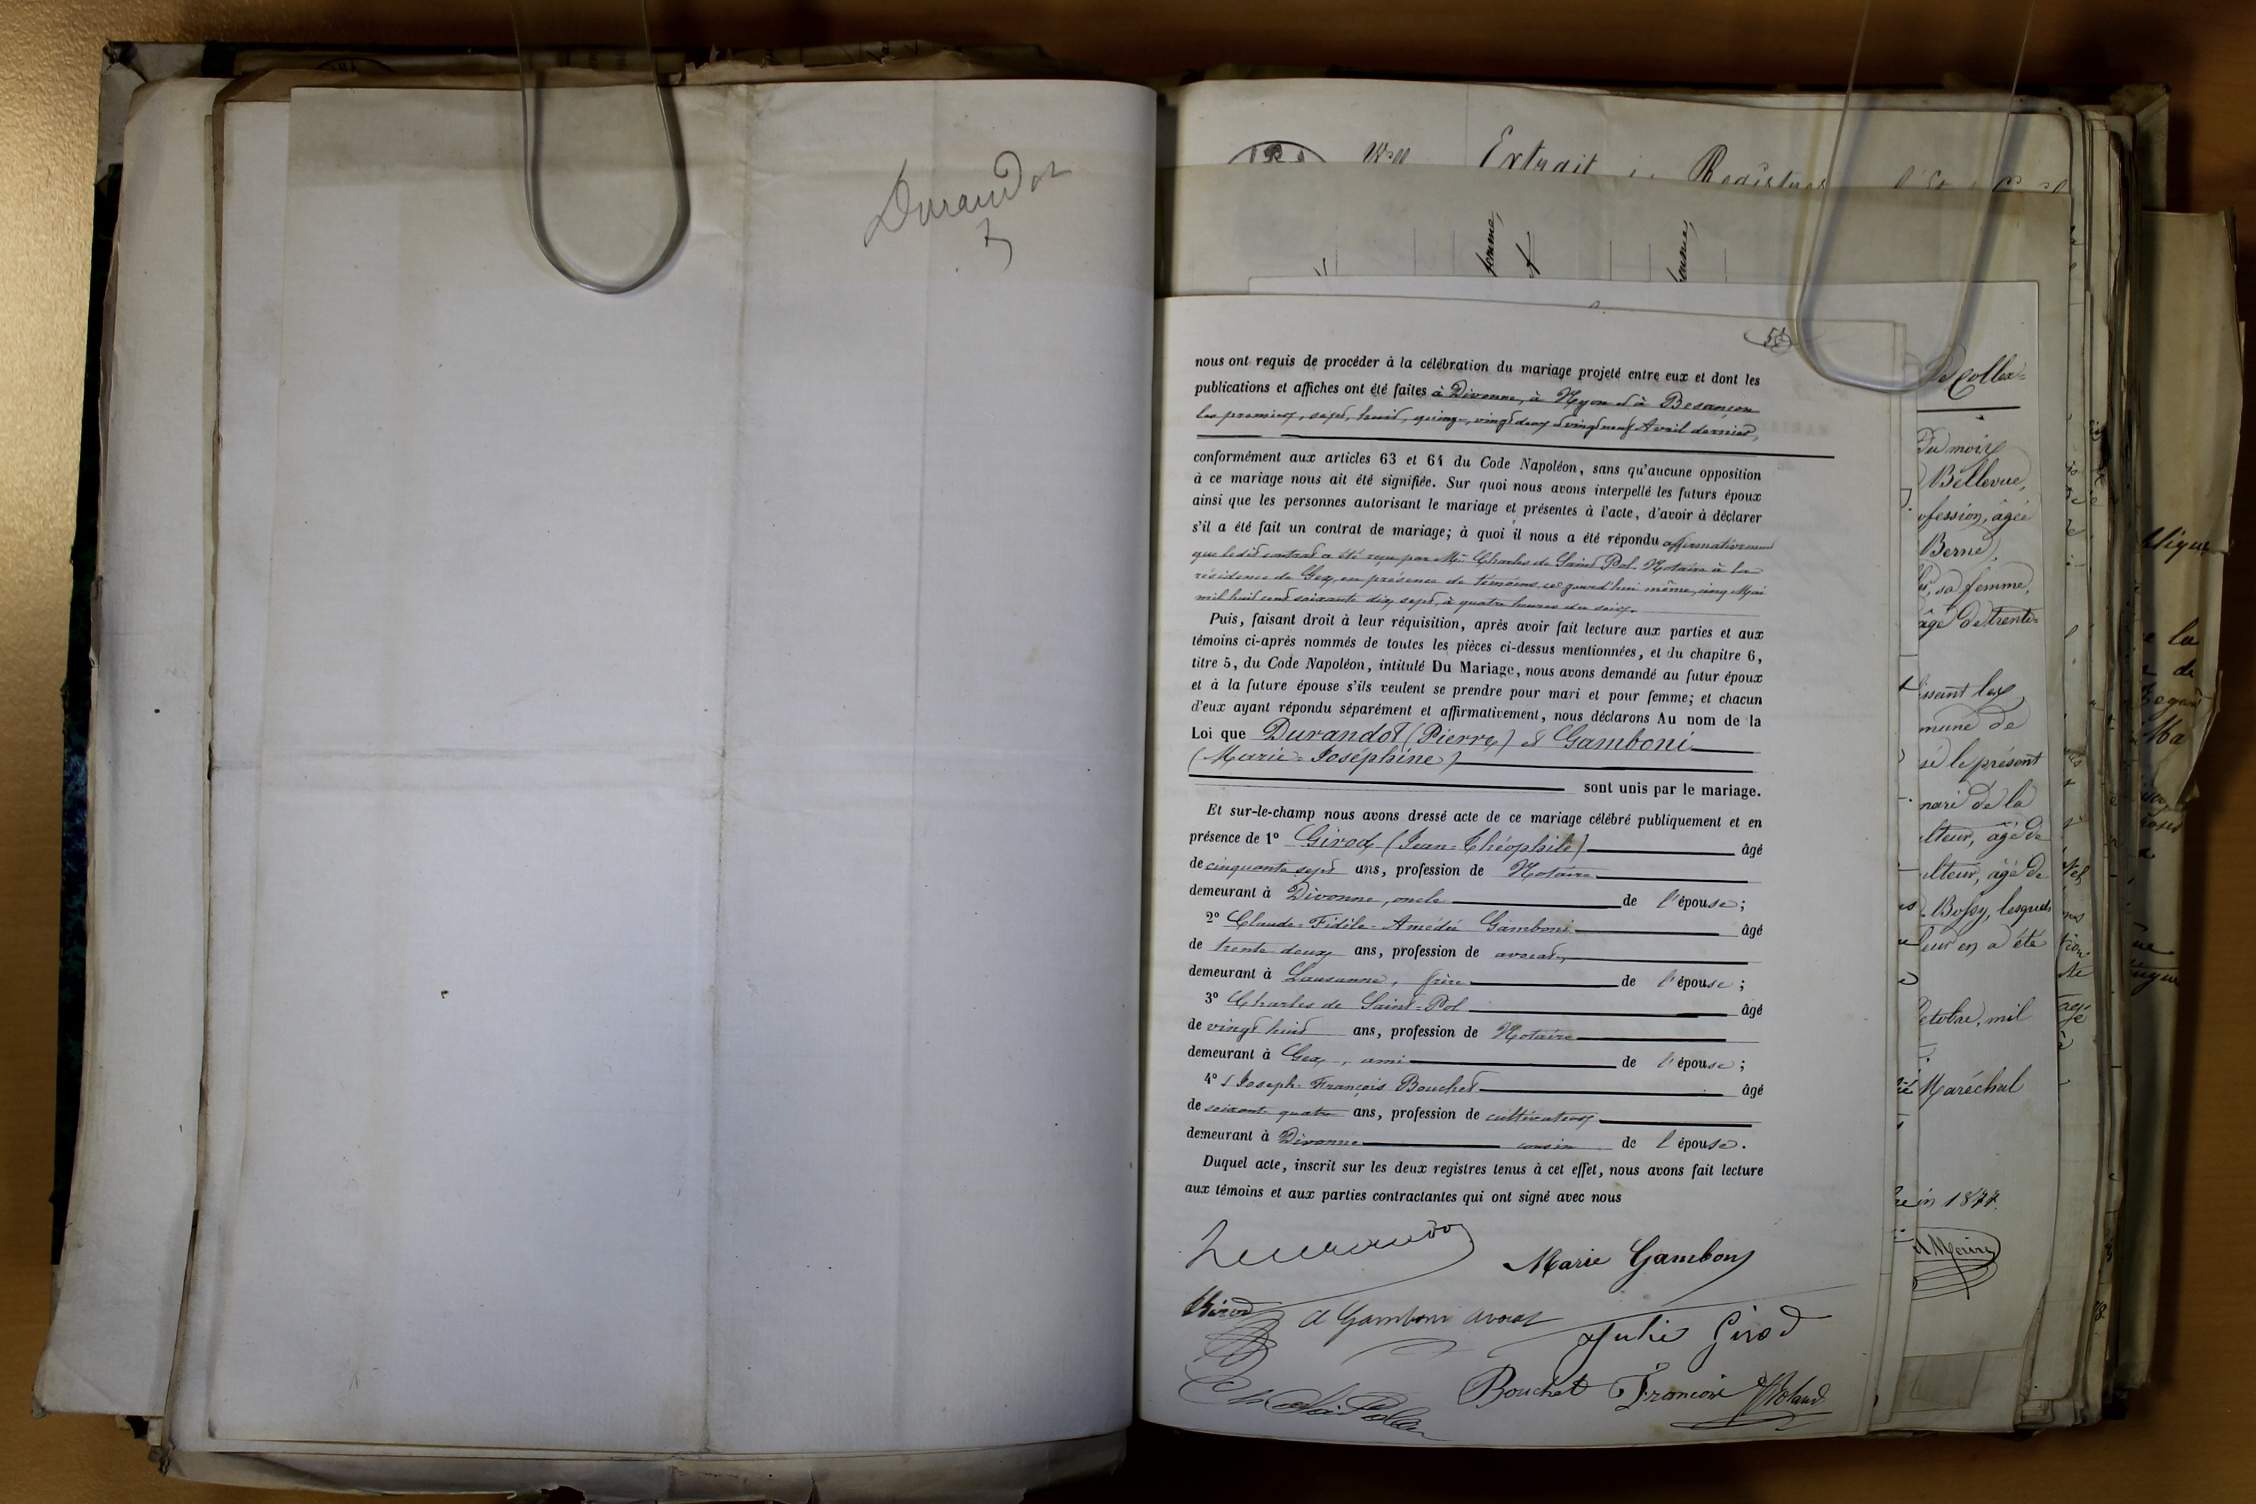 Durandot
5
Extrait Registres
femme,
et
53
nous ont requis de procéder à la célébration du mariage projeté entre eux et dont les
publications et affiches ont été faites à Divonne, à Nyon et à Besançon
les premier, sept, huit, quinze, vingt deux et vingt neuf Avril dernier,
conformément aux articles 63 et 64 du Code Napoléon, sans qu'aucune opposition
à ce mariage nous ait été signifiée. Sur quoi nous avons interpellé les futurs époux
ainsi que les personnes autorisant le mariage et présentes à l'acte, d'avoir à déclarer
s'il a été fait un contrat de mariage; à quoi il nous a été répondu affirmativement
que ledit contrat a été reçu par Me Charles de Saint Pol Notaire à la
résidence de Gex, en présence de témoins, ce jourd'hui même, cinq Mai
mil huit cent soixante dix sept, à quatre heures du soir.
Puis, faisant droit à leur réquisition, après avoir fait lecture aux parties et aux
témoins ci-après nommés de toutes les pièces ci-dessus mentionnées, et du chapitre 6,
titre 5, du Code Napoléon, intitulé Du Mariage, nous avons demandé au futur époux
et à la future épouse s'ils veulent se prendre pour mari et pour femme; et chacun
d'eux ayant répondu séparément et affirmativement, nous déclarons Au nom de la
Loi que Durandot (Pierre) et Gamboni
(Marie-Joséphine)
sont unis par le mariage.
Et sur-le-champ nous avons dressé acte de ce mariage célébré publiquement et en
présence de 1º Girod (Jean-Théophile) âgé
de cinquante sept ans, profession de Notaire
demeurant à Divonne, oncle de l'épouse;
2º Claude-Fidèle-Amédée Gamboni âgé
de trente deux ans, profession de avocat,
demeurant à Lausanne, frère de l'épouse;
3º Charles de Saint-Pol âgé
de vingt huit ans, profession de Notaire
demeurant à Gex, ami de l'épouse;
4º Joseph-François Bouchet âgé
de soixante quatre ans, profession de cultivateur
demeurant à Divonne cousin de l'épouse.
Duquel acte, inscrit sur les deux registres tenus à cet effet, nous avons fait lecture
aux témoins et aux parties contractantes qui ont signé avec nous
Durandot
Marie Gamboni
Girod
A Gamboni avocat
Julie Girod
Bouchet François
de Collex-
Du mois
Bellevue,
ofession, âgée
Berne,
sa femme,
âgé de trente-
issant les
mune de
sé le présent
mari de la
lteur, âgé de
ulteur, âgé de
Bossy, lesquels
leur en a été
octobre, mil
Maréchal
in 1877.